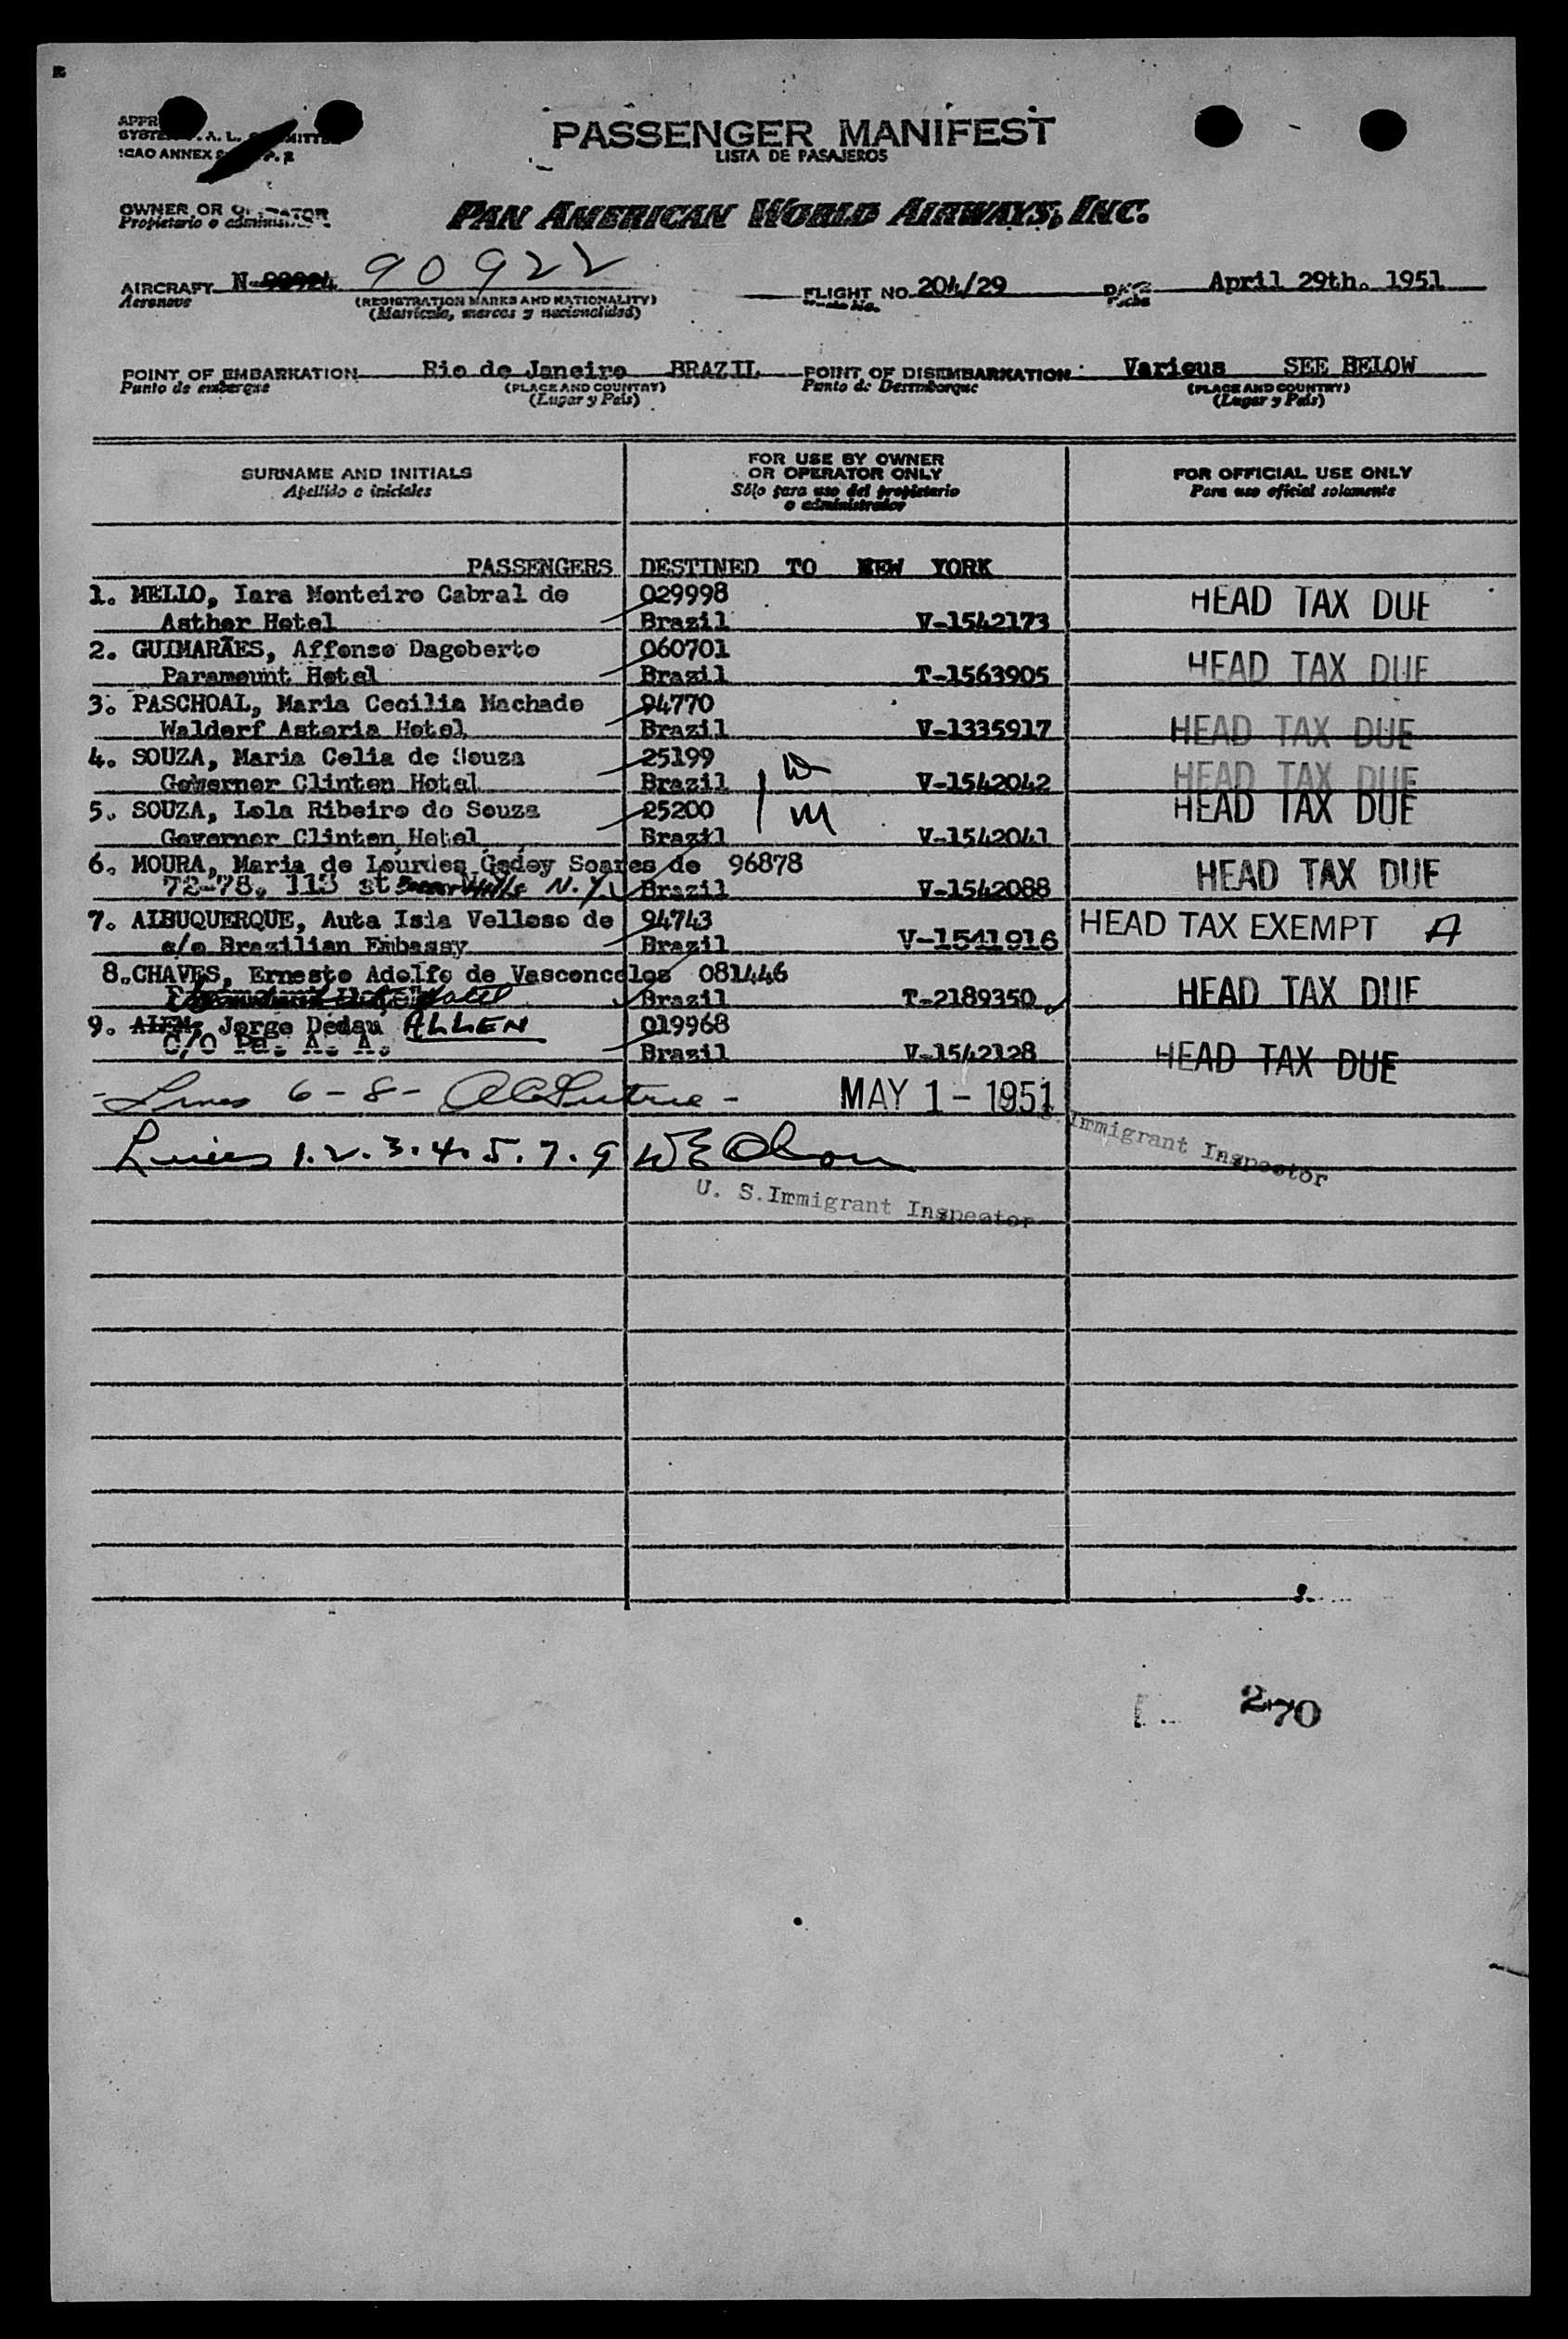 PASSENGER MANIFEST
LISTA DE PASAJEROS
ICAO ANNEX
OWNER OR OPERATOR
Propietario o administrador
PAN AMERICAN WORLD AIRWAYS, INC.
AIRCRAFT N- 90922
Aeronave
(REGISTRATION MARKS AND NATIONALITY)
(Matrícula, marcas y nacionalidad)
FLIGHT NO. 204/29
Vuelo No.
DATE April 29th. 1951
Fecha
POINT OF EMBARKATION Rio de Janeiro BRAZIL
Punto de embarque
(PLACE AND COUNTRY)
(Lugar y País)
POINT OF DISEMBARKATION Various SEE BELOW
Punto de Desembarque
(PLACE AND COUNTRY)
(Lugar y País)
SURNAME AND INITIALS
Apellido e iniciales
FOR USE BY OWNER
OR OPERATOR ONLY
Sólo para uso del propietario
o administrador
FOR OFFICIAL USE ONLY
Para uso oficial solamente
PASSENGERS DESTINED TO NEW YORK
1. MELLO, Iara Monteiro Cabral de 029998 HEAD TAX DUE
Asther Hotel Brazil V-1542173
2. GUIMARÃES, Affonso Dagoberto 060701 HEAD TAX DUE
Paramount Hotel Brazil T-1563905
3. PASCHOAL, Maria Cecilia Machado 94770 HEAD TAX DUE
Waldorf Astoria Hotel Brazil V-1335917
4. SOUZA, Maria Celia de Souza 25199 W HEAD TAX DUE
Governor Clinton Hotel Brazil V-1542042
5. SOUZA, Lola Ribeiro do Souza 25200 M HEAD TAX DUE
Governor Clinton Hotel Brazil V-1542041
6. MOURA, Maria de Lourdes Godoy Soares de 96878 HEAD TAX DUE
72-78, 113 st Hills N.Y. Brazil V-1542088
7. ALBUQUERQUE, Auta Isla Velloso de 94743 HEAD TAX EXEMPT A
c/o Brazilian Embassy Brazil V-1541916
8. CHAVES, Ernesto Adolfo de Vasconcelos 081446 HEAD TAX DUE
Hotel Brazil T-2189350
9. Jorge Dedau ALLEN 019968 HEAD TAX DUE
C/O Pa. A. A. Brazil V-1542128
- Lines 6 - 8 - MAY 1 - 1951
U. S. Immigrant Inspector
Lines 1. 2. 3. 4. 5. 7. 9 W E Olson
U. S. Immigrant Inspector
270